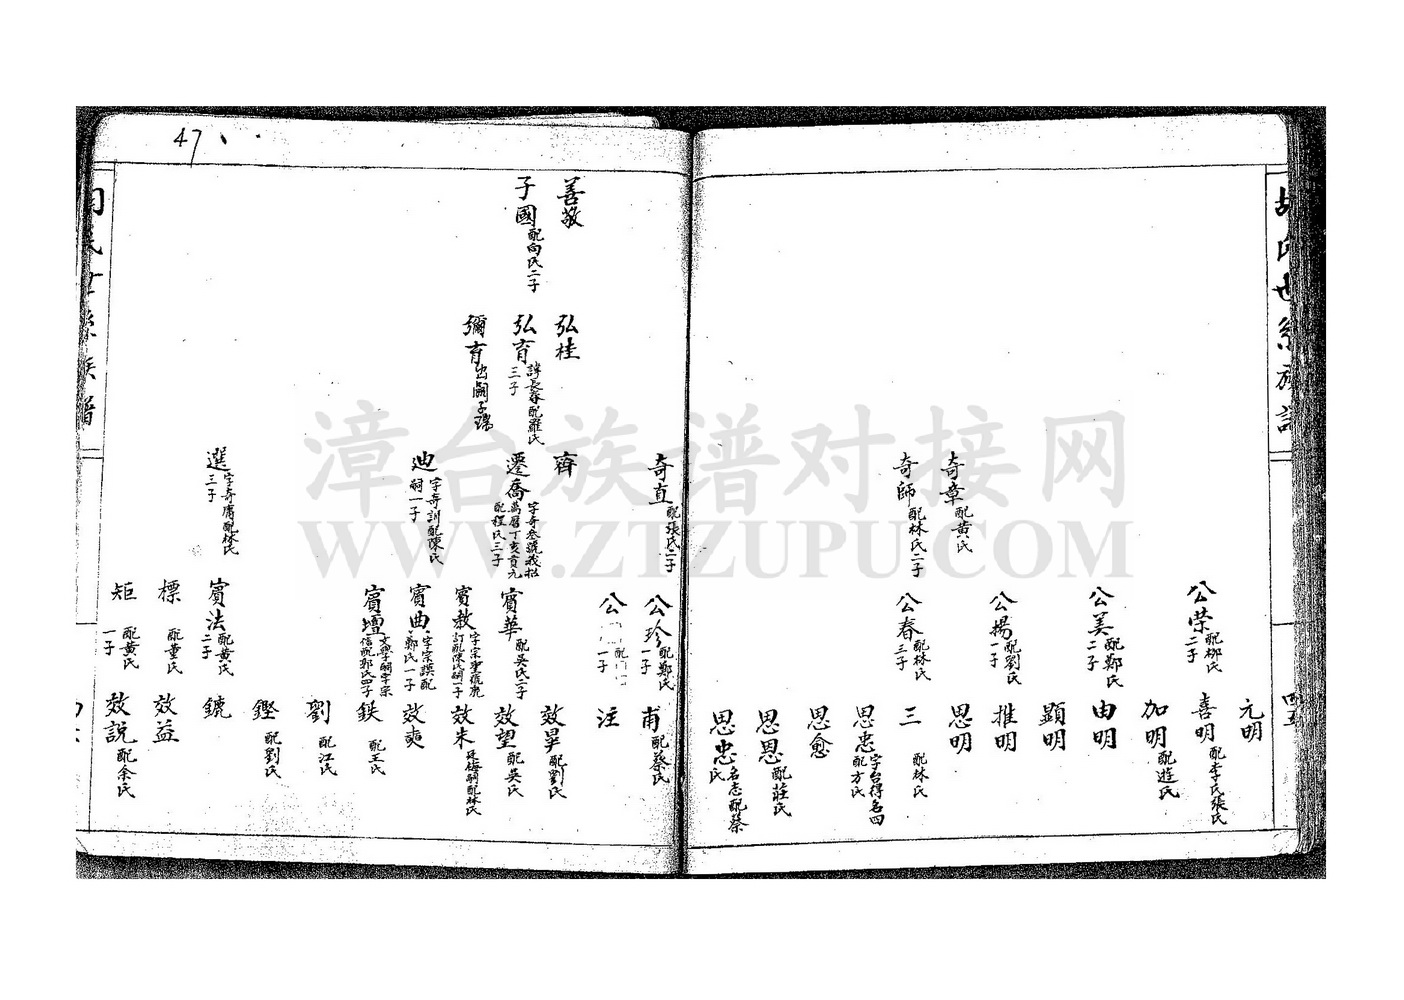 47
胡氏世系族譜
四五
元明
公榮 配柳氏二子
喜明 配李氏張氏
加明 配遊氏
公美 配鄭氏二子
由明
顯明
公揚 配劉氏一子
推明
奇章 配黃氏
思明
奇師 配林氏二子
公春 配林氏三子
三 配林氏
思忠 字台得名四配方氏
思愈
思恩 配莊氏
思忠 名志配蔡氏
奇直 配張氏二子
公珍 配鄭氏一子
甫 配蔡氏
公 配 一子
注
善敬
弘桂
齊
效畢 配劉氏
子國 配向氏二子
弘育 諱長春配羅氏三子
遷喬 萬曆丁亥貢元配程氏三子
賓華 配吳氏二子
效望 配吳氏
彌育 出嗣子瑞
賓教
效朱
迪 字奇訓配陳氏嗣一子
賓曲 字宗謨配鄭氏一子
效爽
賓壇
鉄 配王氏
劉 配江氏
鏗 配劉氏
選 字奇膺配林氏三子
賓法 配黃氏二子
鑣
標 配童氏
效益
矩 配黃氏一子
效説 配余氏
漳台族谱对接网
WWW.ZTZUPU.COM